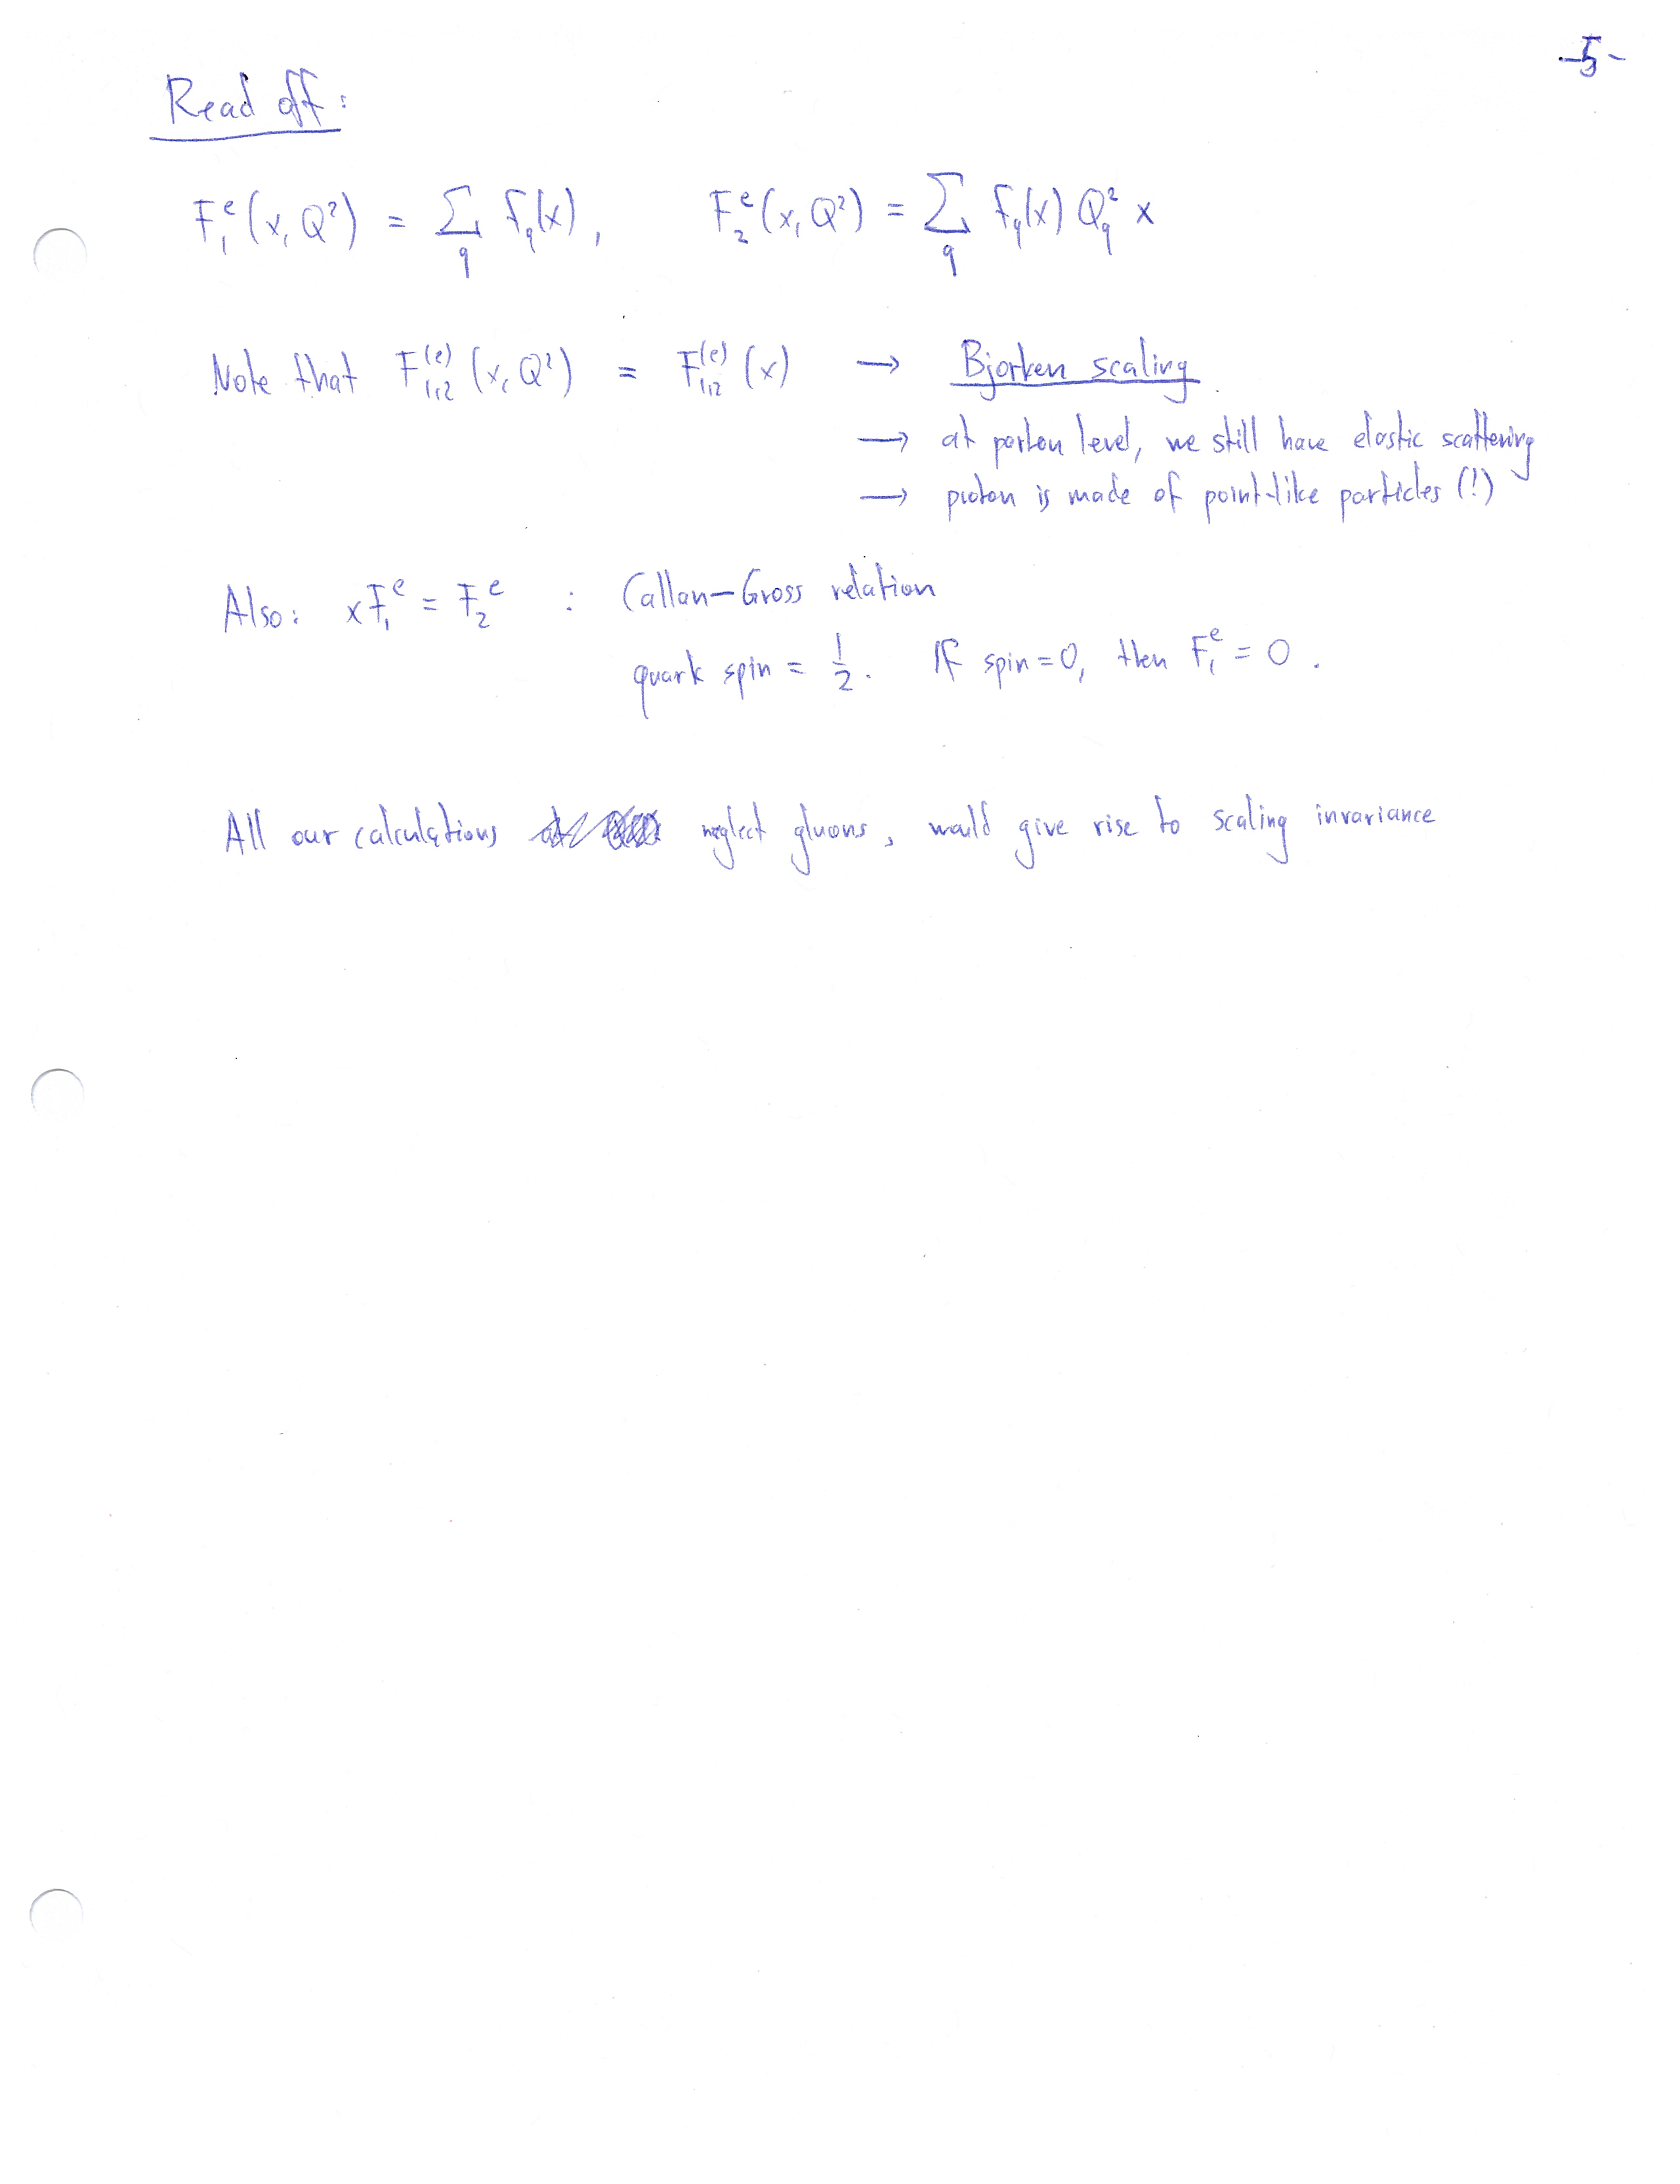 -5-
Read off:
F₁ᵉ(x, Q²) = Σ_q f_q(x), F₂ᵉ(x, Q²) = Σ_q f_q(x) Q_q² x
Note that F₁,₂⁽ᵉ⁾(x, Q²) = F₁,₂⁽ᵉ⁾(x) → Bjorken scaling
→ at parton level, we still have elastic scattering
→ proton is made of point-like particles (!)
Also: xF₁ᵉ = F₂ᵉ : Callan-Gross relation
quark spin = 1/2. If spin=0, then F₁ᵉ = 0.
All our calculations neglect gluons, would give rise to scaling invariance